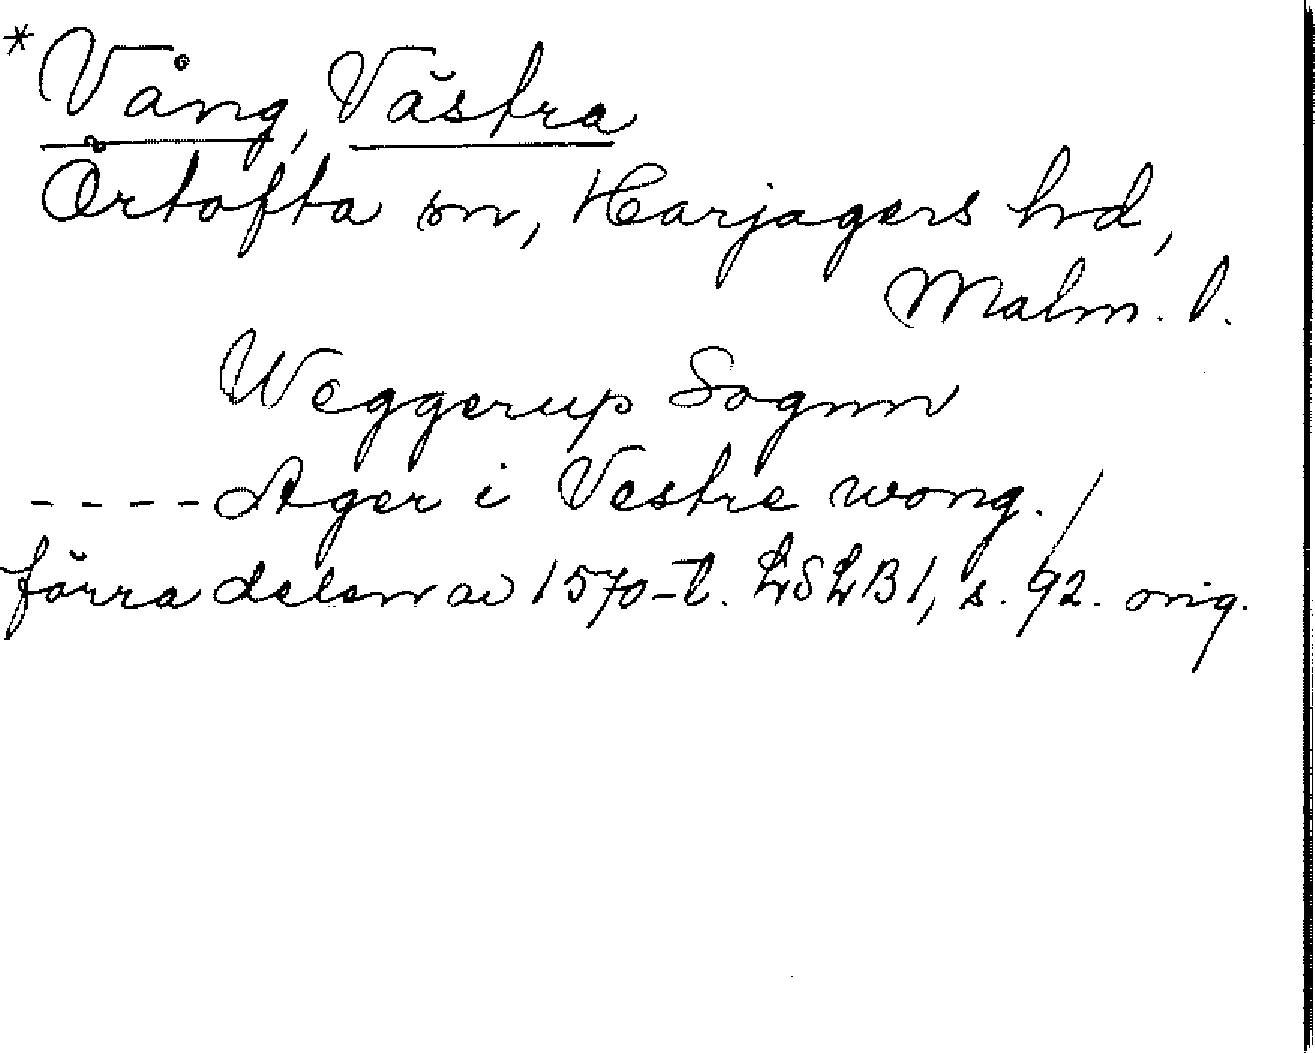 *Vång, Västra
Örtofta sn, Harjagers hd,
Malm. l.
Weggerup Sognn
---- Ager i Vestre wong./
förra delen av 1570-t. LSLB1, s. 92. orig.